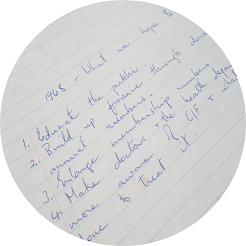 1968 - What we hope to
1. Educate the public
2. Build up finance through
annual members.
3. Enlarge membership numbers.
4. Make doctors & the health
more aware of CF &
to treat it.